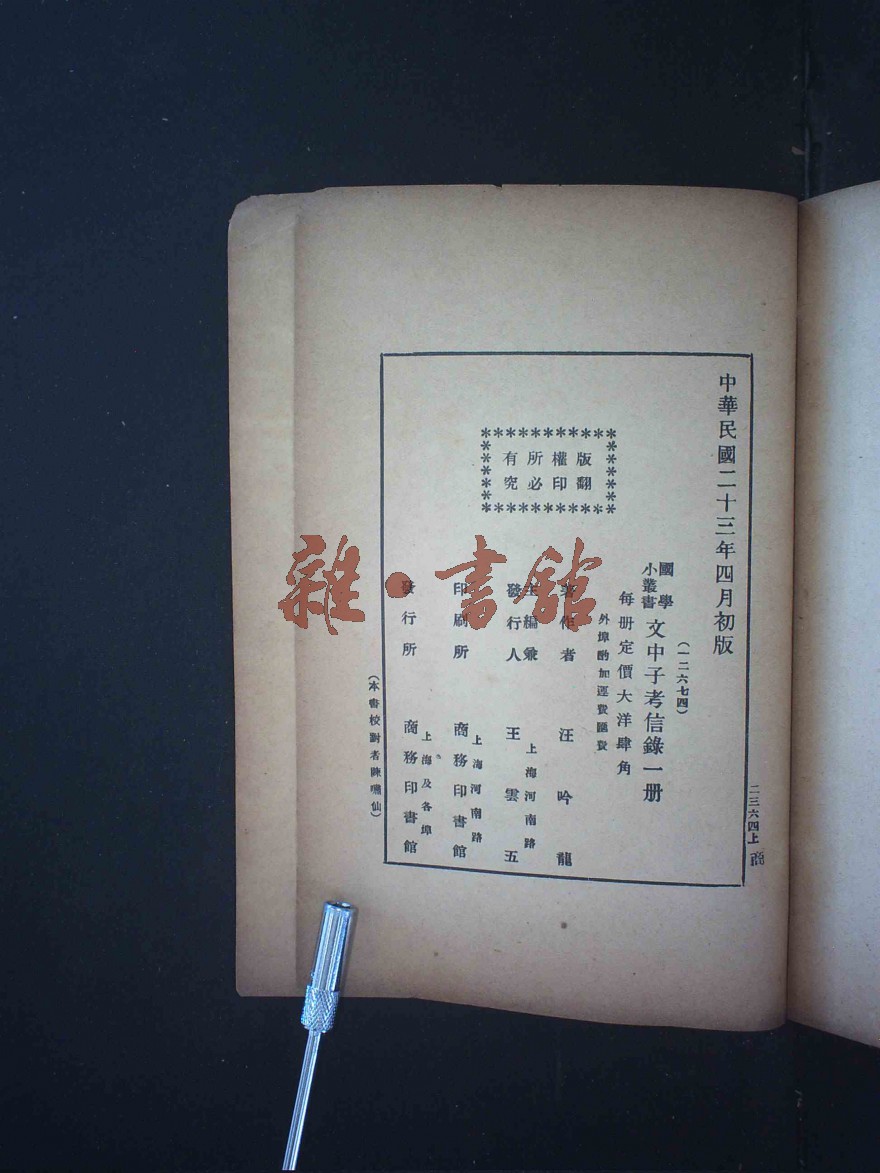 中華民國二十三年四月初版
(一二六七四)
國學
小叢書
文中子考信錄一册
每册定價大洋肆角
外埠酌加運費匯費
版權所有
翻印必究
著作者 汪吟龍
主編兼
發行人
上海河南路
王雲五
印刷所
上海河南路
商務印書館
發行所
上海及各埠
商務印書館
(本書校對者陳曦仙)
二三六四上
商
雜·書館